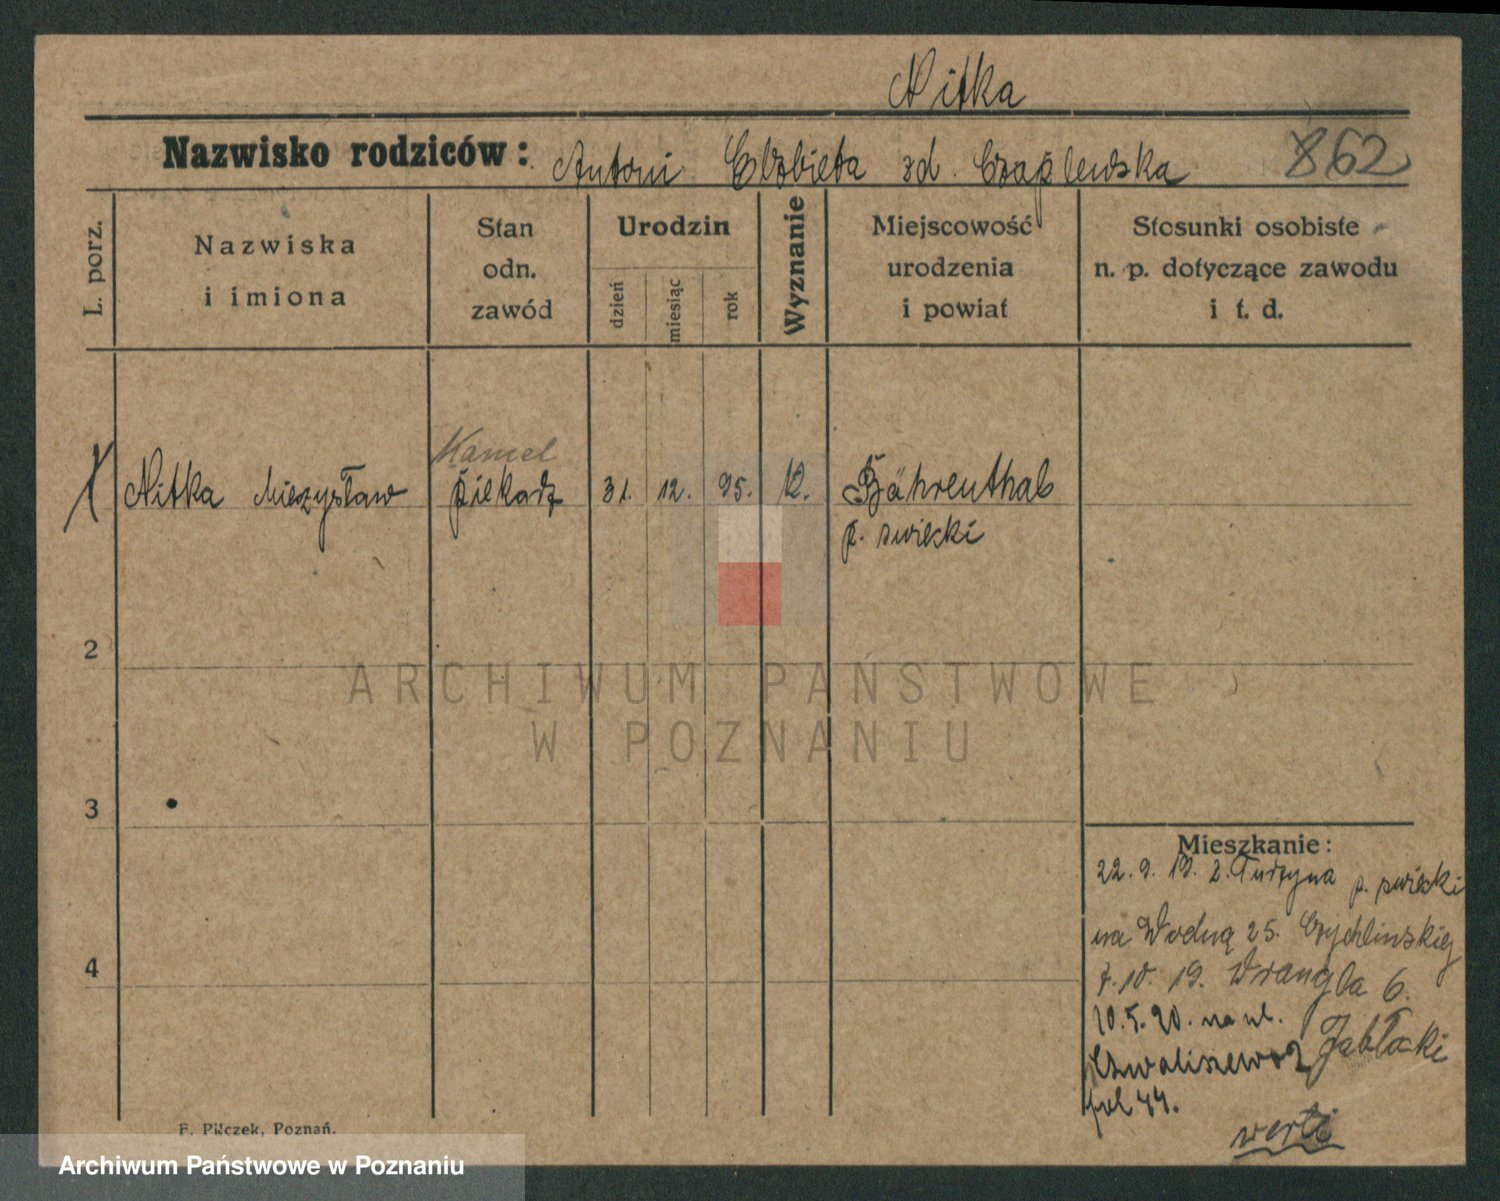 Nitka
Nazwisko rodziców: Antoni Elżbieta zd. Czaplewska 862
L. porz.
Nazwiska
i imiona
Stan
odn.
zawód
Urodzin
dzień
miesiąc
rok
Wyznanie
Miejscowość
urodzenia
i powiat
Stosunki osobiste
n. p. dotyczące zawodu
i t. d.
Nitka Mieczysław piekarz 31. 12. 95. Bährenthal
p. świecki
2
3
4
Mieszkanie:
22. 9. 19. z p. świecki
na Wodną 25.
7. 10. 19. Wrangla 6.
10. 5. 20. na ul. Jabłocki
Chwaliszewo
44.
verte
F. Pilczek, Poznań.
ARCHIWUM PAŃSTWOWE
W POZNANIU
Archiwum Państwowe w Poznaniu